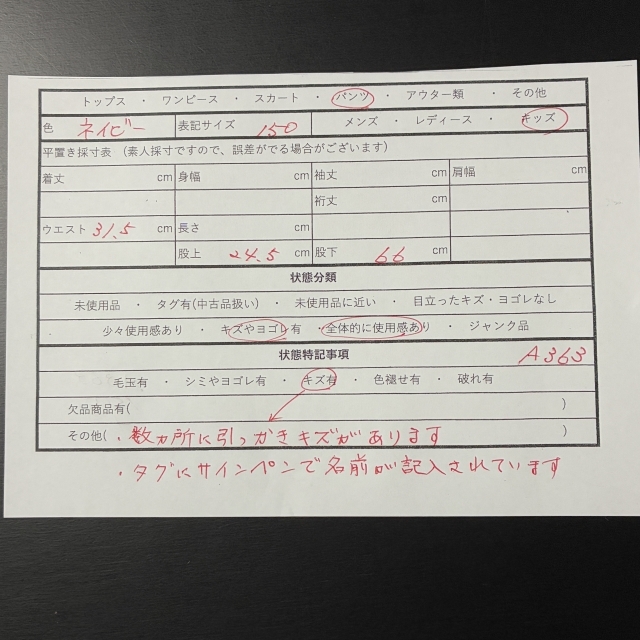 トップス ・ ワンピース ・ スカート ・ パンツ ・ アウター類 ・ その他
色 ネイビー 表記サイズ 150 メンズ ・ レディース ・ キッズ
平置き採寸表 (素人採寸ですので、誤差がでる場合がございます)
着丈 cm 身幅 cm 袖丈 cm 肩幅 cm
裄丈 cm
ウエスト 31.5 cm 長さ cm
股上 24.5 cm 股下 66 cm
状態分類
未使用品 ・ タグ有(中古品扱い) ・ 未使用品に近い ・ 目立ったキズ・ヨゴレなし
少々使用感あり ・ キズやヨゴレ有 ・ 全体的に使用感あり ・ ジャンク品
状態特記事項 A363
毛玉有 ・ シミやヨゴレ有 ・ キズ有 ・ 色褪せ有 ・ 破れ有
欠品商品有( )
その他( ・数ヵ所に引っかきキズがあります )
・タグにサインペンで名前が記入されています